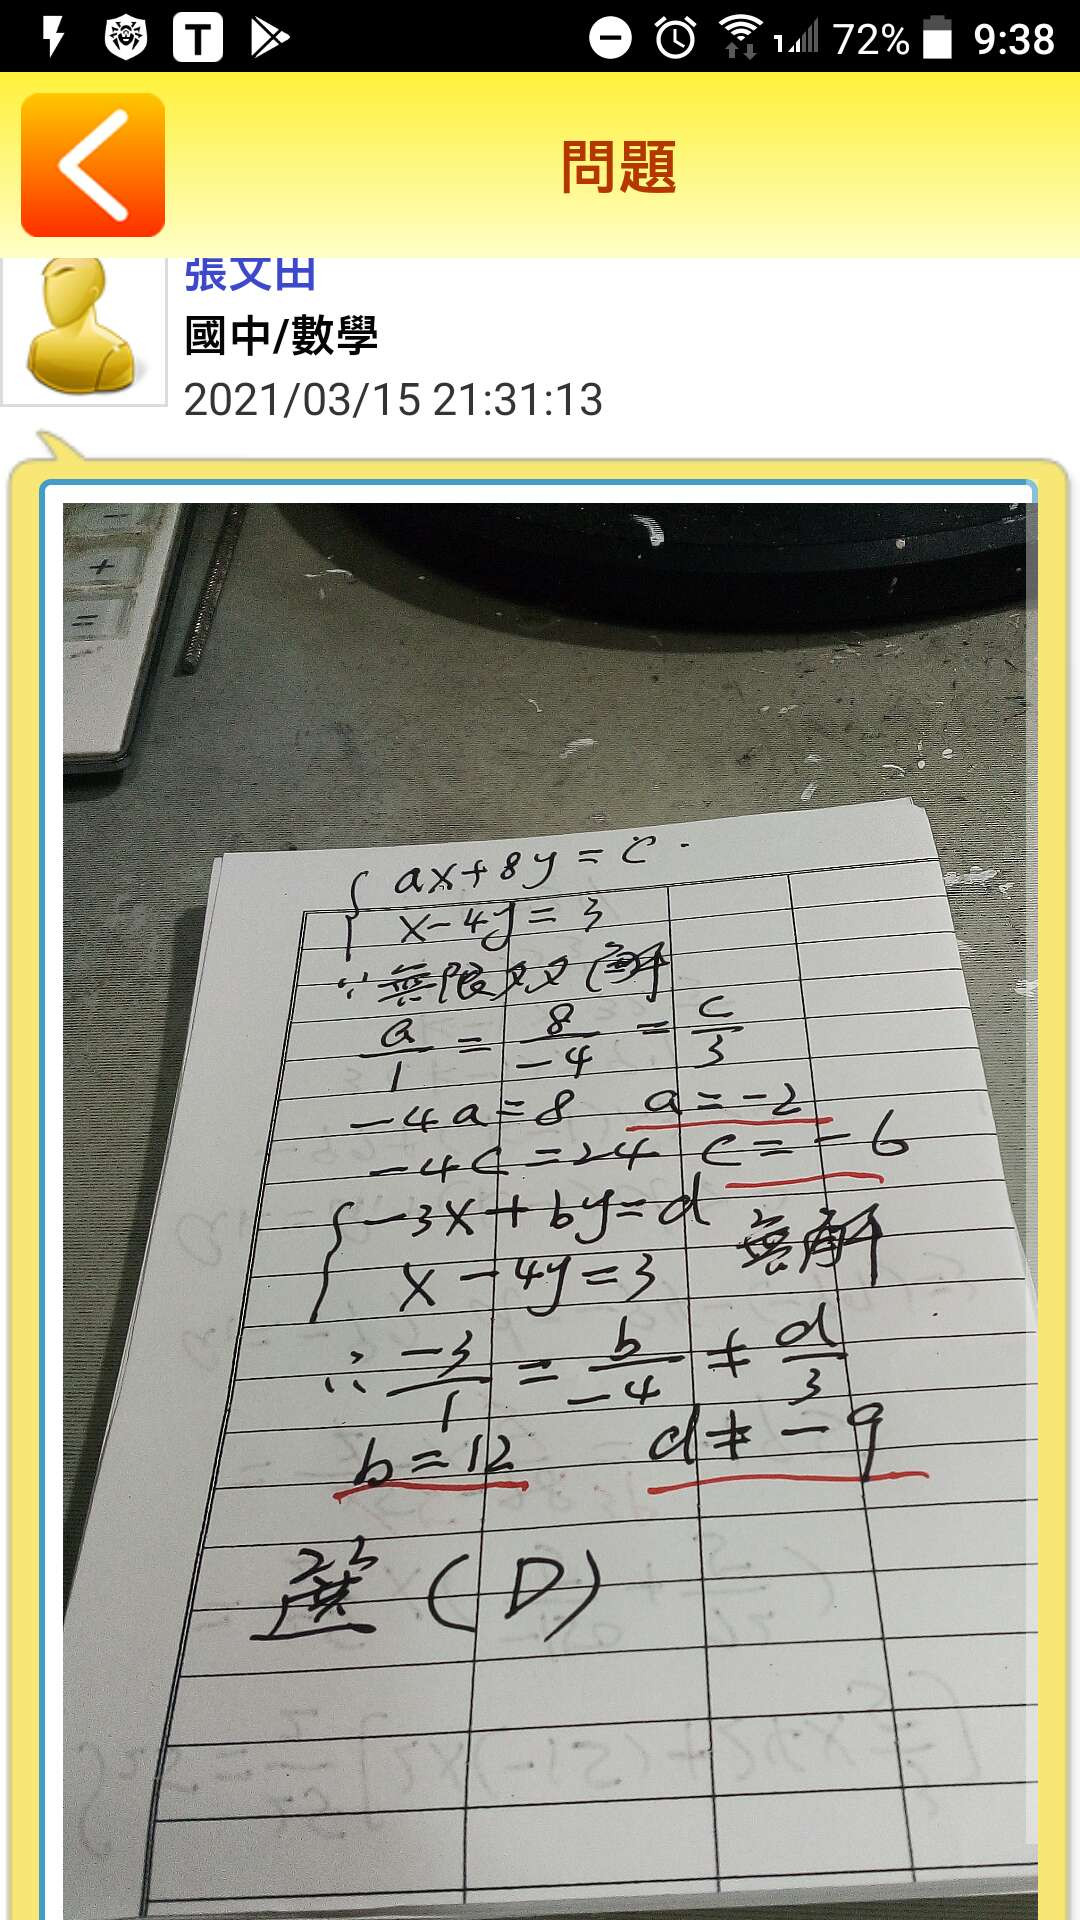 T
1
72%
9:38
問題
張文田
國中/數學
2021/03/15 21:31:13
-
+
=
ax+8y=c.
x-4y=3
∵無限多解
a/1 = 8/-4 = c/3
-4a=8 a=-2
-4c=24 c=-6
-3x+by=d
x-4y=3 無解
∴ -3/1 = b/-4 ≠ d/3
b=12 d≠-9
選(D)